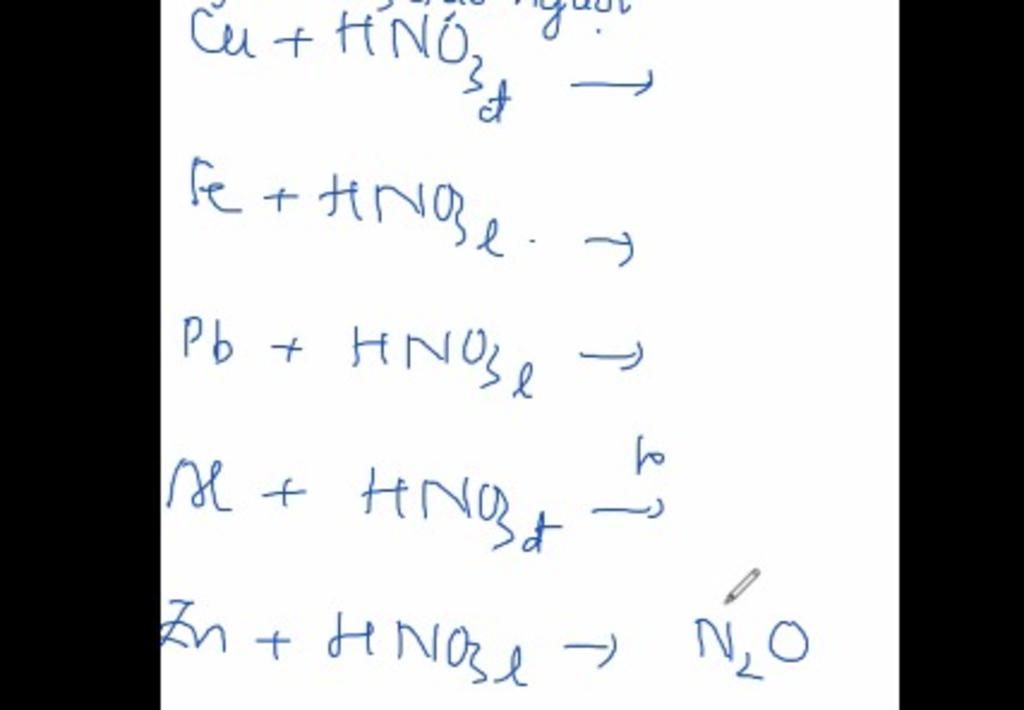 nguội
Cu + HNO₃ đ →
Fe + HNO₃ l. →
Pb + HNO₃ l →
Al + HNO₃ đ t° →
Zn + HNO₃ l → N₂O